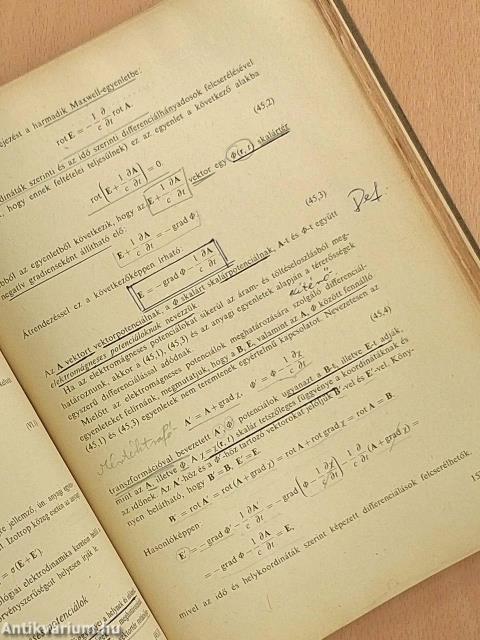 fejezést a harmadik Maxwell-egyenletbe:
rot E = − 1/c ∂/∂t rot A.
koordináták szerinti és az idő szerinti differenciálhányadosok felcserélésével
hogy ennek feltételei teljesülnek) ez az egyenlet a következő alakba
rot (E + 1/c ∂A/∂t) = 0. (45,2)
ebből az egyenletből következik, hogy az E + 1/c ∂A/∂t vektor egy Φ(r, t) skalártér
negatív gradienseként állítható elő:
E + 1/c ∂A/∂t = − grad Φ.
Átrendezéssel ez a következőképpen írható:
E = − grad Φ − 1/c ∂A/∂t. (45,3)
Def
Az A vektort vektorpotenciálnak, a Φ skalárt skalárpotenciálnak, A-t és Φ-t együtt
elektromágneses potenciáloknak nevezzük.
Ha az elektromágneses potenciálokat sikerül az áram- és töltéseloszlásból meg-
határoznunk, akkor a (45,1), (45,3) és az anyagi egyenletek alapján a térerősségek
egyszerű differenciálással adódnak.
Mielőtt az elektromágneses potenciálok meghatározására szolgáló differenciál-
egyenleteket felírnánk, megmutatjuk, hogy a B, E, valamint az A, Φ között fennálló
(45,1) és (45,3) egyenletek nem teremtenek egyértelmű kapcsolatot. Nevezetesen az
A′ = A + grad χ, Φ′ = Φ − 1/c ∂χ/∂t (45,4)
transzformációval bevezetett A′, Φ′ potenciálok ugyanazt a B-t, illetve E-t adják,
mint az A, illetve Φ. A χ = χ(r, t) skalár tetszőleges függvénye a koordinátáknak és
az időnek. Az A′-höz és a Φ′-höz tartozó vektorokat jelöljük B′-vel és E′-vel. Köny-
nyen belátható, hogy B′ = B, E′ = E.
B′ = rot A′ = rot (A + grad χ) = rot A + rot grad χ = rot A = B.
Hasonlóképpen
E′ = − grad Φ′ − 1/c ∂A′/∂t = − grad (Φ − 1/c ∂χ/∂t) − 1/c ∂/∂t (A + grad χ) =
= − grad Φ − 1/c ∂A/∂t = E,
mivel az idő és helykoordináták szerint képzett differenciálások felcserélhetők.
Antikvarium.hu